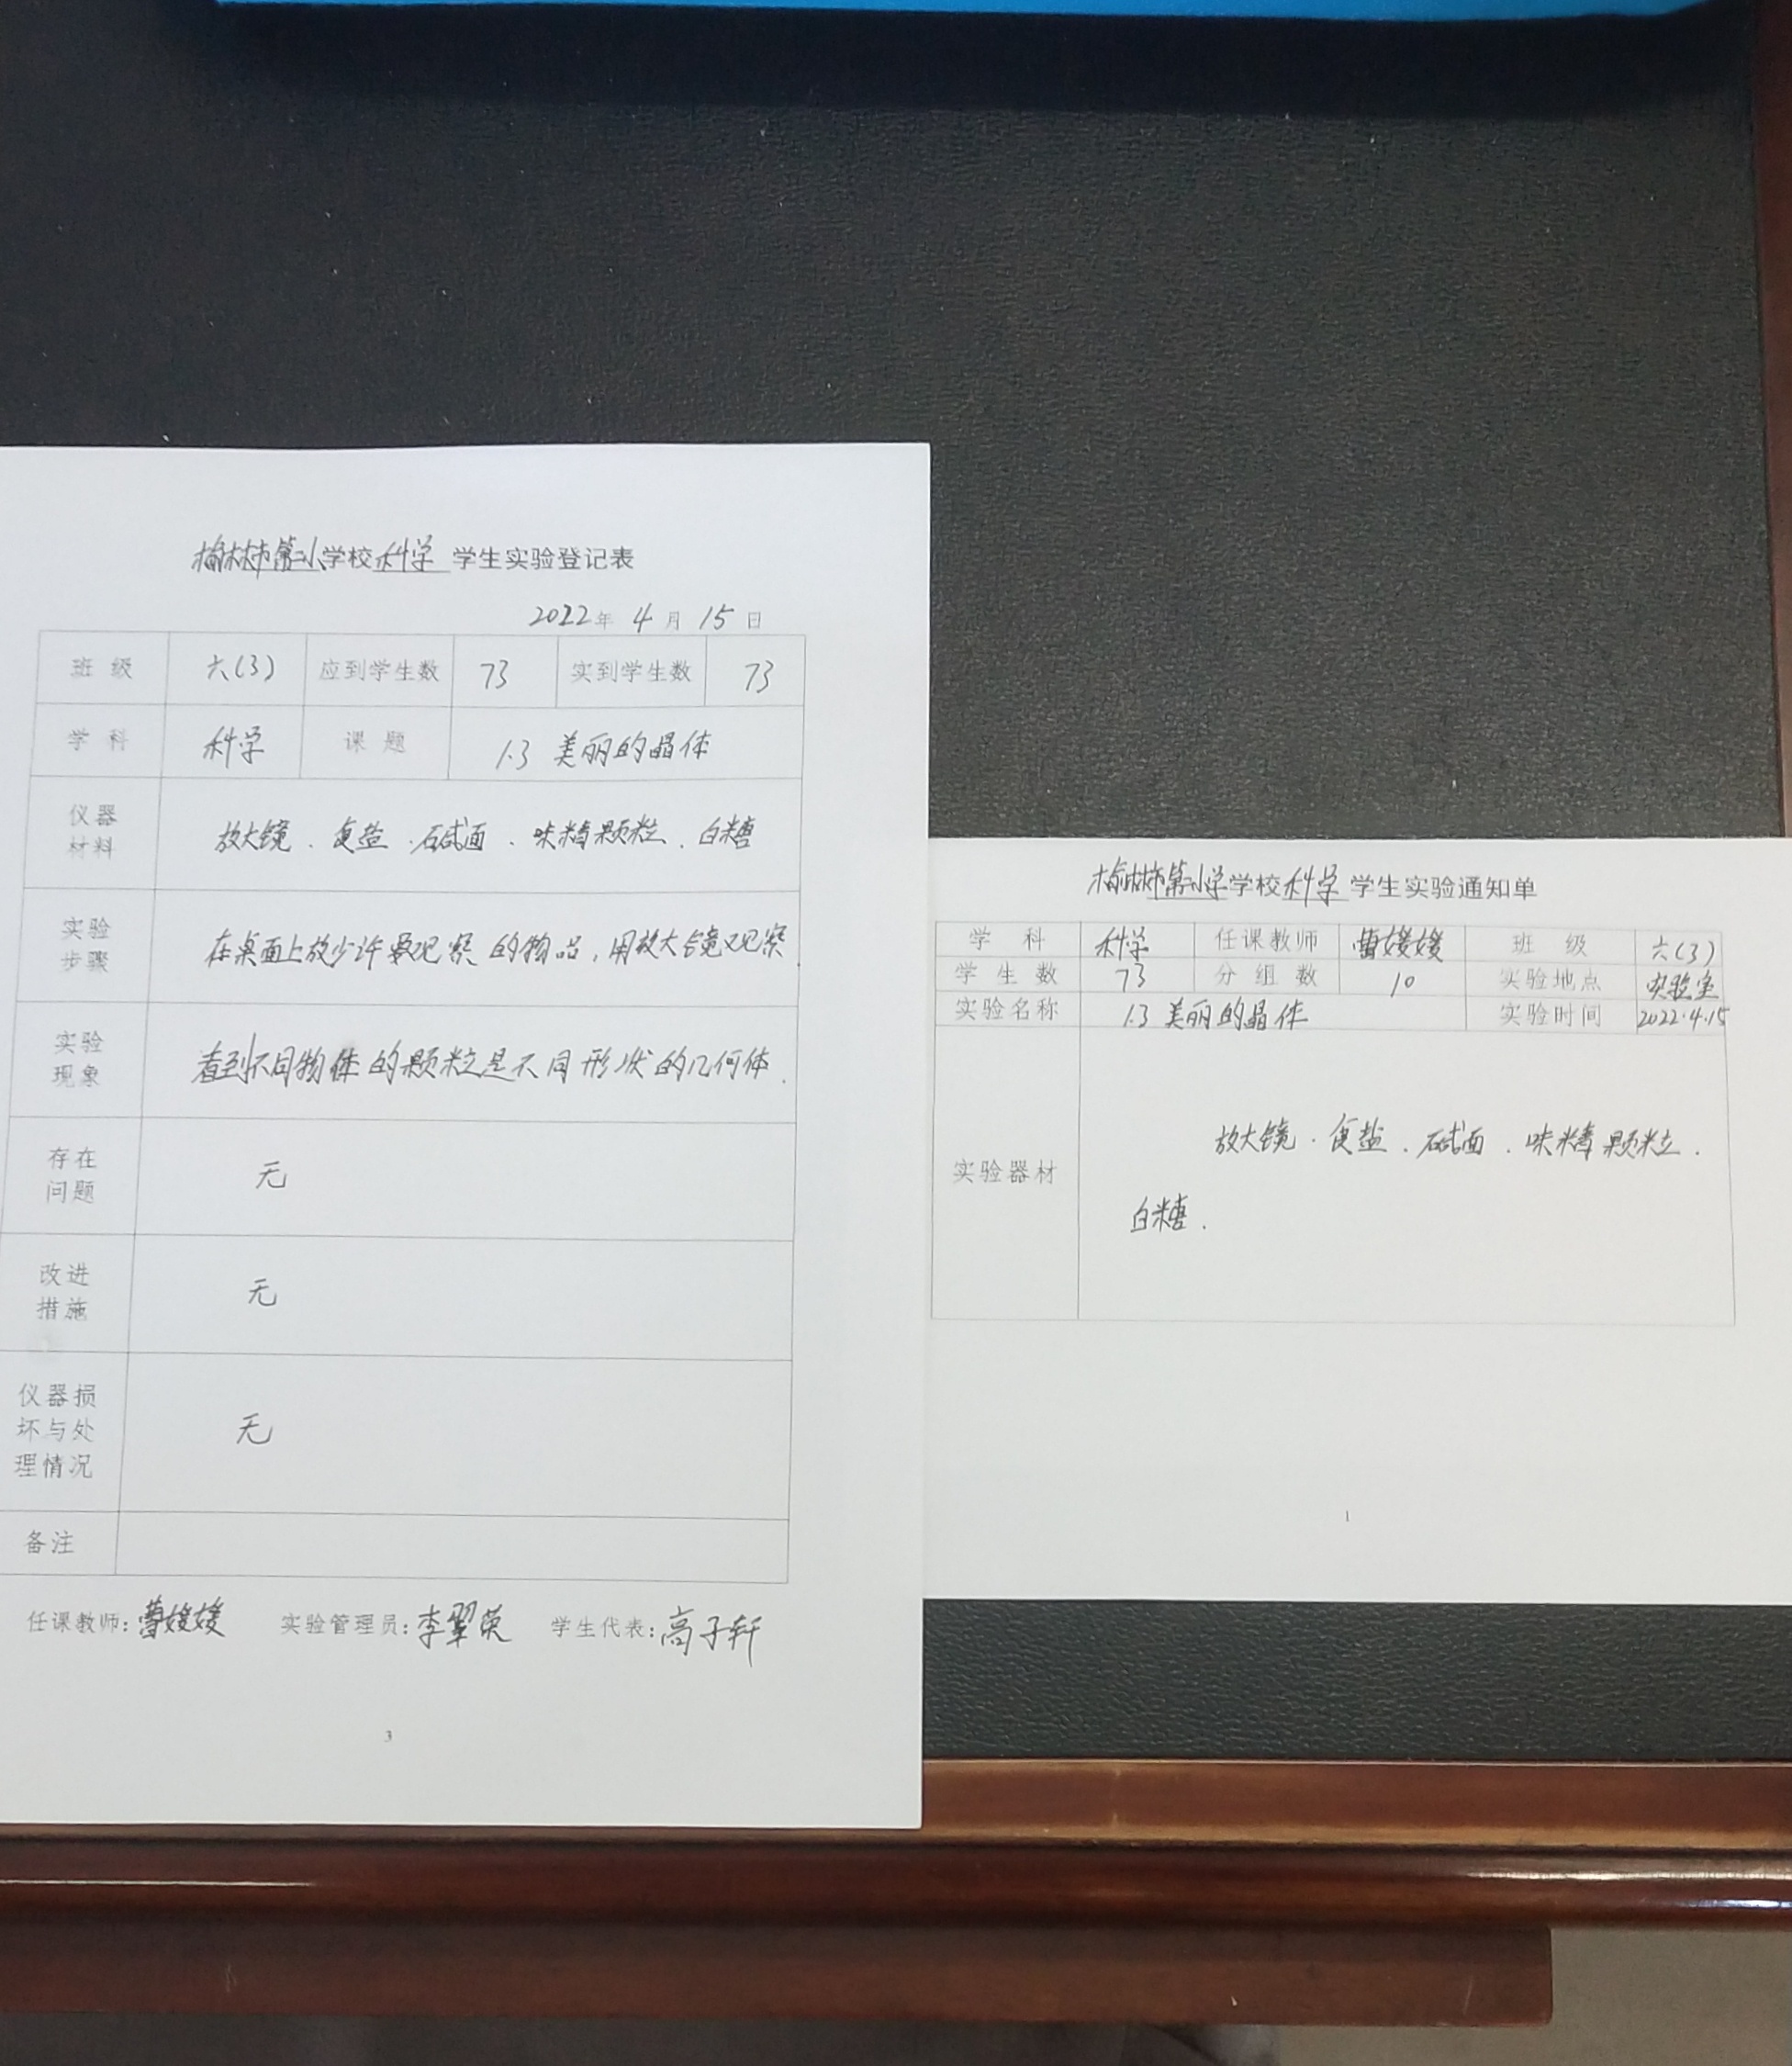 榆林市第小学校科学 学生实验登记表
2022年 4月 15日
班级 六(3) 应到学生数 73 实到学生数 73
学科 科学 课题 1.3 美丽的晶体
仪器
材料
放大镜.食盐.碱面.味精颗粒.白糖
实验
步骤
在桌面上放少许要观察的物品,用放大镜观察.
实验
现象
看到不同物体的颗粒是不同形状的几何体.
存在
问题
无
改进
措施
无
仪器损
坏与处
理情况
无
备注
任课教师:曹媛媛 实验管理员:李翠英 学生代表:高子轩
3
榆林市第小学学校科学 学生实验通知单
学科 科学 任课教师 曹媛媛 班级 六(3)
学生数 73 分组数 10 实验地点 实验室
实验名称 1.3 美丽的晶体 实验时间 2022.4.15
实验器材
放大镜.食盐.碱面.味精颗粒.
白糖.
1